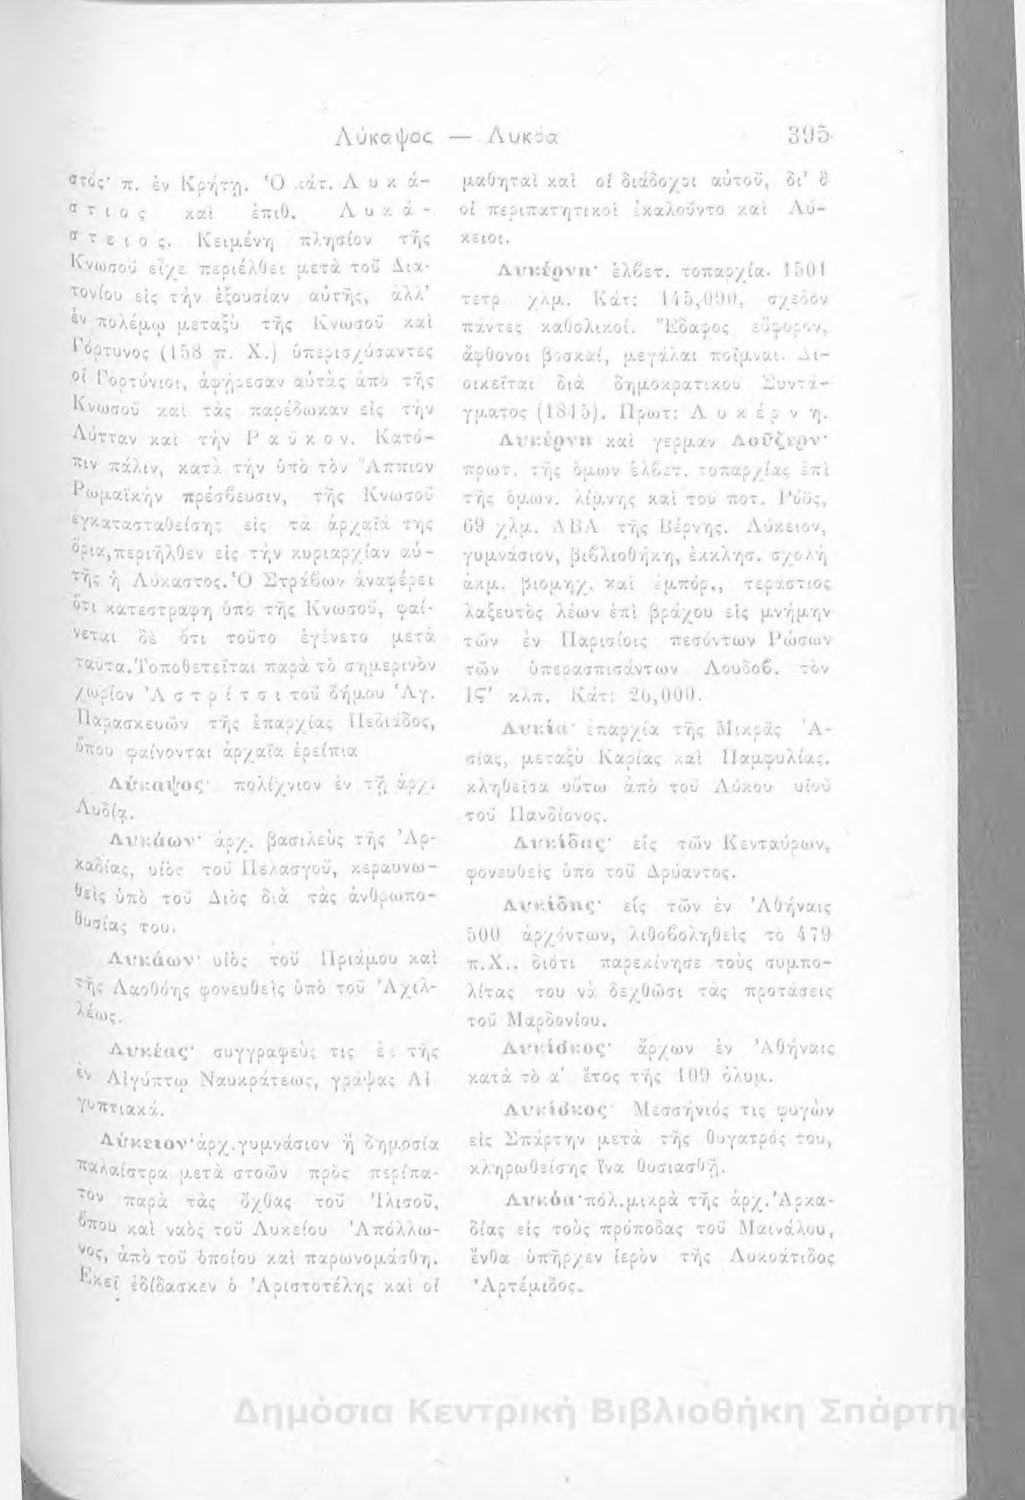 Λύκαψος — Λυκόα 395
στός· π. ἐν Κρήτῃ. Ὁ κάτ. Λ υ κ ά-
σ τ ι ο ς καὶ ἐπιθ. Λ υ κ ά -
σ τ ε ι ο ς. Κειμένη πλησίον τῆς
Κνωσοῦ εἶχε περιέλθει μετὰ τοῦ Δια-
τονίου εἰς τὴν ἐξουσίαν αὐτῆς, ἀλλ'
ἐν πολέμῳ μεταξὺ τῆς Κνωσοῦ καὶ
Γόρτυνος (158 π. Χ.) ὑπερισχύσαντες
οἱ Γορτύνιοι, ἀφῄρεσαν αὐτὰς ἀπὸ τῆς
Κνωσοῦ καὶ τὰς παρέδωκαν εἰς τὴν
Λύτταν καὶ τὴν Ρ α ῦ κ ο ν. Κατό-
πιν πάλιν, κατὰ τὴν ὑπὸ τὸν Ἄππιον
Ρωμαϊκὴν πρέσβευσιν, τῆς Κνωσοῦ
ἐγκατασταθείσης εἰς τὰ ἀρχαῖά της
ὅρια, περιῆλθεν εἰς τὴν κυριαρχίαν αὐ-
τῆς ἡ Λύκαστος. Ὁ Στράβων ἀναφέρει
ὅτι κατεστραφη ὑπὸ τῆς Κνωσοῦ, φαί-
νεται δὲ ὅτι τοῦτο ἐγένετο μετὰ
ταῦτα. Τοποθετεῖται παρὰ τὸ σημερινὸν
χωρίον Ἀ σ τ ρ ί τ σ ι τοῦ δήμου Ἁγ.
Παρασκευῶν τῆς ἐπαρχίας Πεδιάδος,
ὅπου φαίνονται ἀρχαῖα ἐρείπια
Λύκαψος· πολίχνιον ἐν τῇ ἀρχ.
Λυδίᾳ.
Λυκάων· ἀρχ. βασιλεὺς τῆς Ἀρ-
καδίας, υἱὸς τοῦ Πελασγοῦ, κεραυνω-
θεὶς ὑπὸ τοῦ Διὸς διὰ τὰς ἀνθρωπο-
θυσίας του.
Λυκάων· υἱὸς τοῦ Πριάμου καὶ
τῆς Λαοθόης φονευθεὶς ὑπὸ τοῦ Ἀχιλ-
λέως.
Λυκέας· συγγραφεύς τις ἐκ τῆς
ἐν Αἰγύπτῳ Ναυκράτεως, γράψας Αἰ
γυπτιακά.
Λύκειον· ἀρχ. γυμνάσιον ἢ δημοσία
παλαίστρα μετὰ στοῶν πρὸς περίπα-
τον παρὰ τὰς ὄχθας τοῦ Ἰλισοῦ,
ὅπου καὶ ναὸς τοῦ Λυκείου Ἀπόλλω-
νος, ἀπὸ τοῦ ὁποίου καὶ παρωνομάσθη.
Ἐκεῖ ἐδίδασκεν ὁ Ἀριστοτέλης καὶ οἱ
μαθηταὶ καὶ οἱ διάδοχοι αὐτοῦ, δι' ὃ
οἱ περιπατητικοὶ ἐκαλοῦντο καὶ Λύ-
κειοι.
Λυκέρνη· ἑλβετ. τοπαρχία. 1501
τετρ χλμ. Κάτ: 145,090, σχεδὸν
πάντες καθολικοί. Ἔδαφος εὔφορον,
ἄφθονοι βοσκαί, μεγάλαι ποῖμναι. Δι-
οικεῖται διὰ δημοκρατικοῦ Συντά-
γματος (1845). Πρωτ: Λ υ κ έ ρ ν η.
Λυκέρνη καὶ γερμαν Λοῦζερν·
πρωτ. τῆς ὁμων ἑλβετ. τοπαρχίας ἐπὶ
τῆς ὁμων. λίμνης καὶ τοῦ ποτ. Ρόϋς,
69 χλμ. ΑΒΑ τῆς Βέρνης. Λύκειον,
γυμνάσιον, βιβλιοθήκη, ἐκκλησ. σχολὴ
ἀκμ. βιομηχ. καὶ ἐμπόρ., τεράστιος
λαξευτὸς λέων ἐπὶ βράχου εἰς μνήμην
τῶν ἐν Παρισίοις πεσόντων Ρώσων
τῶν ὑπερασπισάντων Λουδοβ. τὸν
ΙϚ' κλπ. Κάτ: 26,000.
Λυκία· ἐπαρχία τῆς Μικρᾶς Ἀ-
σίας, μεταξὺ Καρίας καὶ Παμφυλίας.
κληθεῖσα οὕτω ἀπὸ τοῦ Λύκου υἱοῦ
τοῦ Πανδίονος.
Λυκίδας· εἷς τῶν Κενταύρων,
φονευθεὶς ὑπὸ τοῦ Δρύαντος.
Λυκίδης· εἷς τῶν ἐν Ἀθήναις
500 ἀρχόντων, λιθοβοληθεὶς τὸ 479
π.Χ.. διότι παρεκίνησε τοὺς συμπο-
λίτας του νὰ δεχθῶσι τὰς προτάσεις
τοῦ Μαρδονίου.
Λυκίσκος· ἄρχων ἐν Ἀθήναις
κατὰ τὸ α' ἔτος τῆς 109 ὀλυμ.
Λυκίσκος· Μεσσήνιός τις φυγὼν
εἰς Σπάρτην μετὰ τῆς θυγατρός του,
κληρωθείσης ἵνα θυσιασθῇ.
Λυκόα· πόλ. μικρὰ τῆς ἀρχ. Ἀρκα-
δίας εἰς τοὺς πρόποδας τοῦ Μαινάλου,
ἔνθα ὑπῆρχεν ἱερὸν τῆς Λυκοάτιδος
Ἀρτέμιδος.
Δημόσια Κεντρική Βιβλιοθήκη Σπάρτης